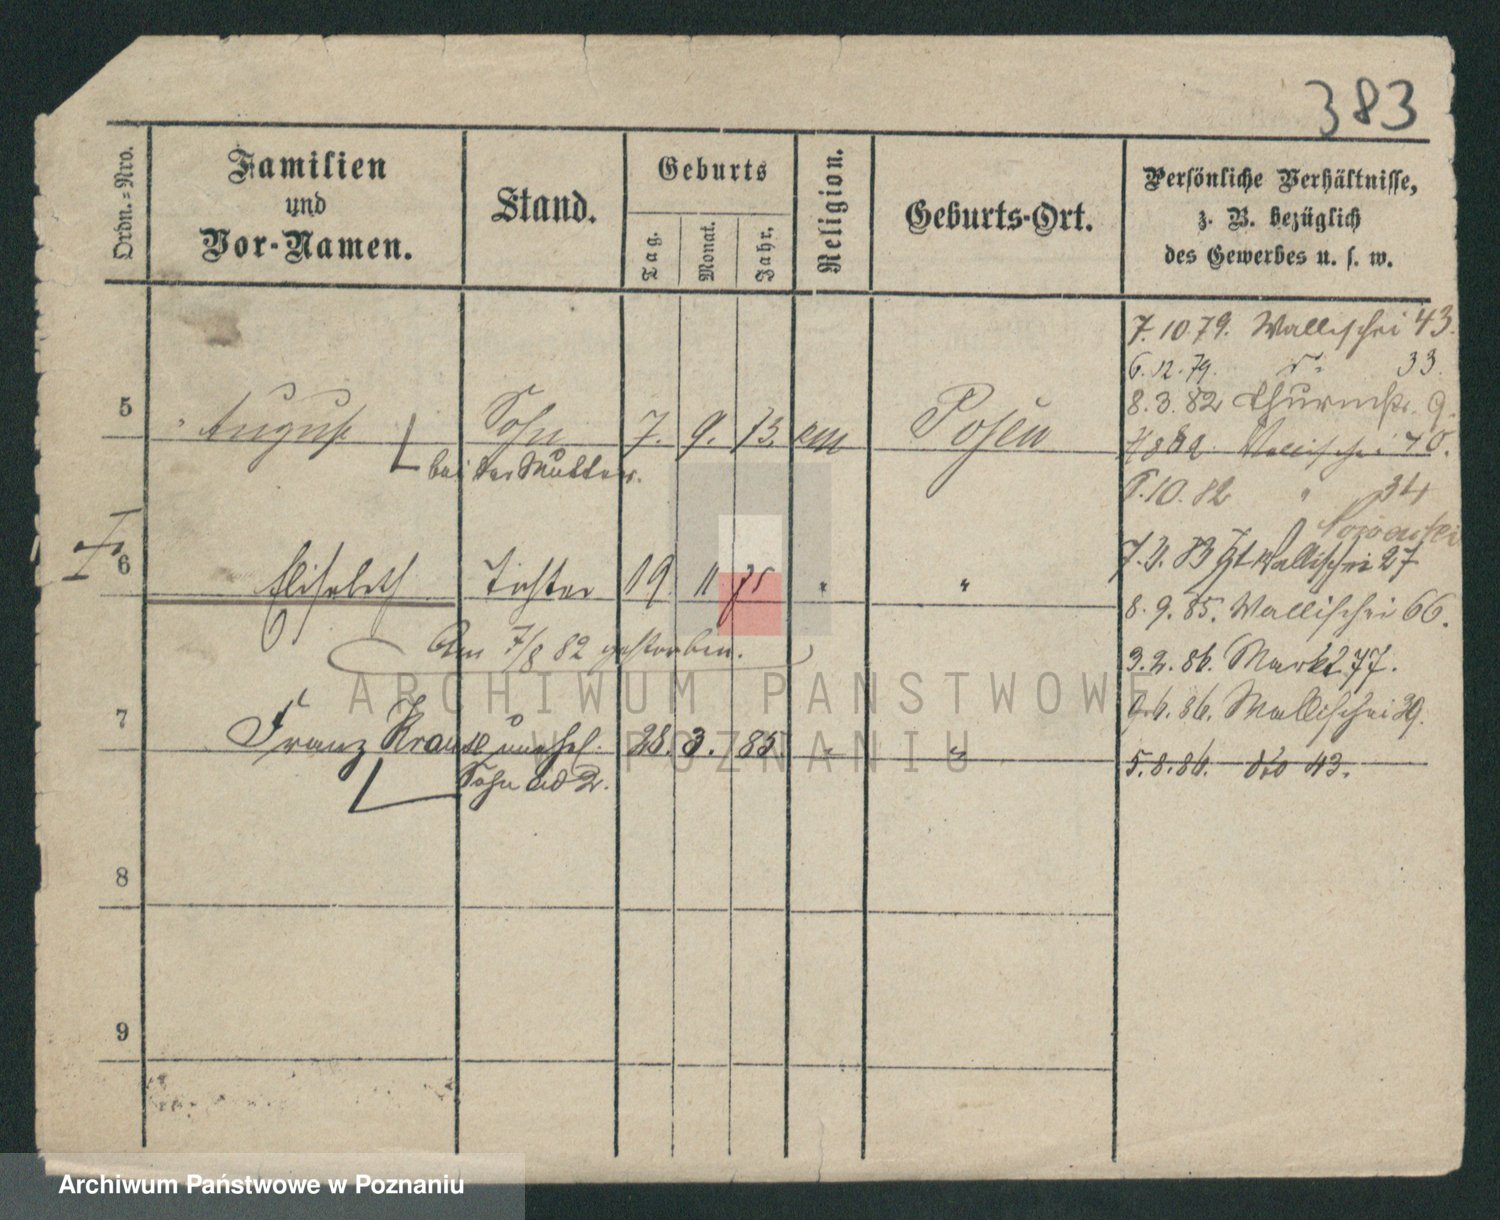 383
Ordn.=Nro.
Familien
und
Vor-Namen.
Stand.
Geburts
Tag.
Monat.
Jahr.
Religion.
Geburts-Ort.
Persönliche Verhältnisse,
z. B. bezüglich
des Gewerbes u. s. w.
7.10.79. Wallischei 43.
6.12.79. do 33.
8.3.82 Thurmstr. 9.
5 August Sohn 7. 9. 73. Posen
Wallischei 70.
bei der Mutter.
6.10.82 " 34
6 Elisabeth Tochter 19 11 75 " "
7.4.83 Wallischei 27
8.9.85. Wallischei 66.
Am 7/8 82 gestorben.
3.2.86. Markt 77.
86. Wallischei 39.
7 Franz Krause unehel. 28. 3. 85. " "
5.8.86. dto 43.
Sohn ad 2.
8
9
ARCHIWUM PANSTWOWE
W POZNANIU
Archiwum Państwowe w Poznaniu